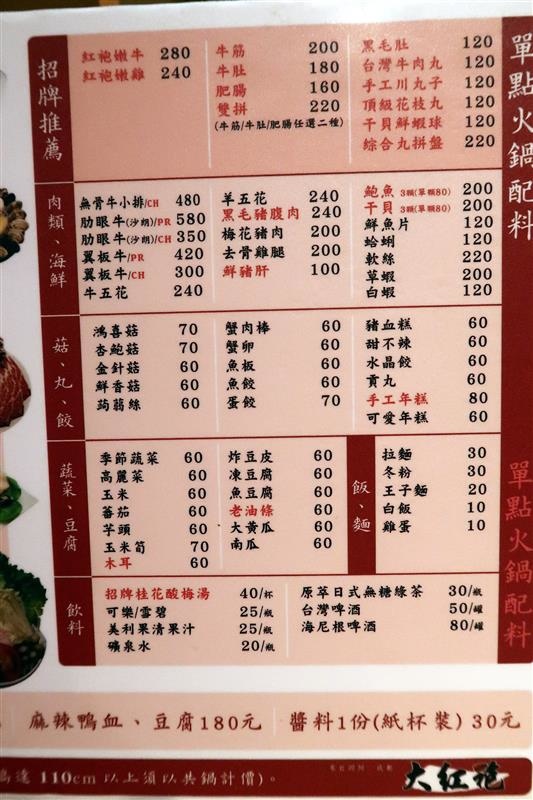 單點火鍋配料
招牌推薦
紅袍嫩牛 280
紅袍嫩雞 240
牛筋 200
牛肚 180
肥腸 160
雙拼 220
(牛筋/牛肚/肥腸任選二種)
黑毛肚 120
台灣牛肉丸 120
手工川丸子 120
頂級花枝丸 120
干貝鮮蝦球 120
綜合丸拼盤 220
肉類、海鮮
無骨牛小排/CH 480
肋眼牛(沙朗)/PR 580
肋眼牛(沙朗)/CH 350
翼板牛/PR 420
翼板牛/CH 300
牛五花 240
羊五花 240
黑毛豬腹肉 240
梅花豬肉 200
去骨雞腿 200
鮮豬肝 100
鮑魚 3顆(單顆80) 200
干貝 3顆(單顆80) 200
鮮魚片 120
蛤蜊 120
軟絲 220
草蝦 200
白蝦 120
菇、丸、餃
鴻喜菇 70
杏鮑菇 70
金針菇 60
鮮香菇 60
蒟蒻絲 60
蟹肉棒 60
蟹卵 60
魚板 60
魚餃 60
蛋餃 70
豬血糕 60
甜不辣 60
水晶餃 60
貢丸 60
手工年糕 80
可愛年糕 60
蔬菜、豆腐
季節蔬菜 60
高麗菜 60
玉米 60
蕃茄 60
芋頭 60
玉米筍 70
木耳 60
炸豆皮 60
凍豆腐 60
魚豆腐 60
老油條 60
大黃瓜 60
南瓜 60
飯、麵
拉麵 30
冬粉 30
王子麵 20
白飯 10
雞蛋 10
單點火鍋配料
飲料
招牌桂花酸梅湯 40/杯
可樂/雪碧 25/瓶
美利果清果汁 25/瓶
礦泉水 20/瓶
原萃日式無糖綠茶 30/瓶
台灣啤酒 50/罐
海尼根啤酒 80/罐
麻辣鴨血、豆腐180元
醬料1份(紙杯裝) 30元
高達 110cm 以上須以共鍋計價)。
大紅袍